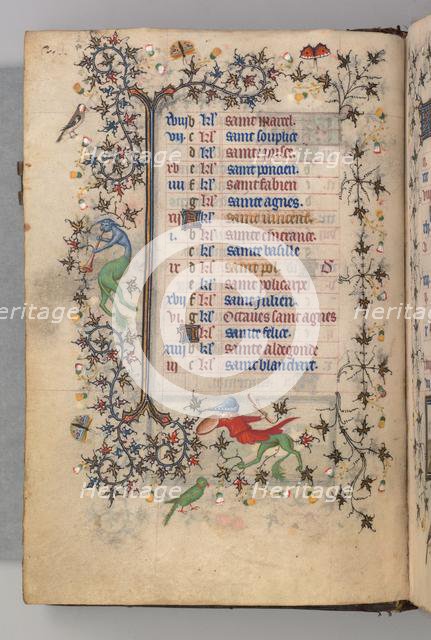 xviij b kl' saint marcel
vij c kl' saint souplice
d kl'
xv e kl' saint poncien
iiij f kl' saint fabien
g kl' sainte agnes
xij kl' saint vincent
i. b kl' sainte emerance
c kl' sainte basille
ix d kl' saint pol
e kl' saint policarpe
xvij f kl' saint julien
vi. g kl' Octaues sainte agnes
kl' sainte felice
xiiij b kl' sainte aldegonde
iij c kl' saint blanchart
Heritage
Heritage
Heritage
Heritage
Heritage
Images
Images
Images
Images